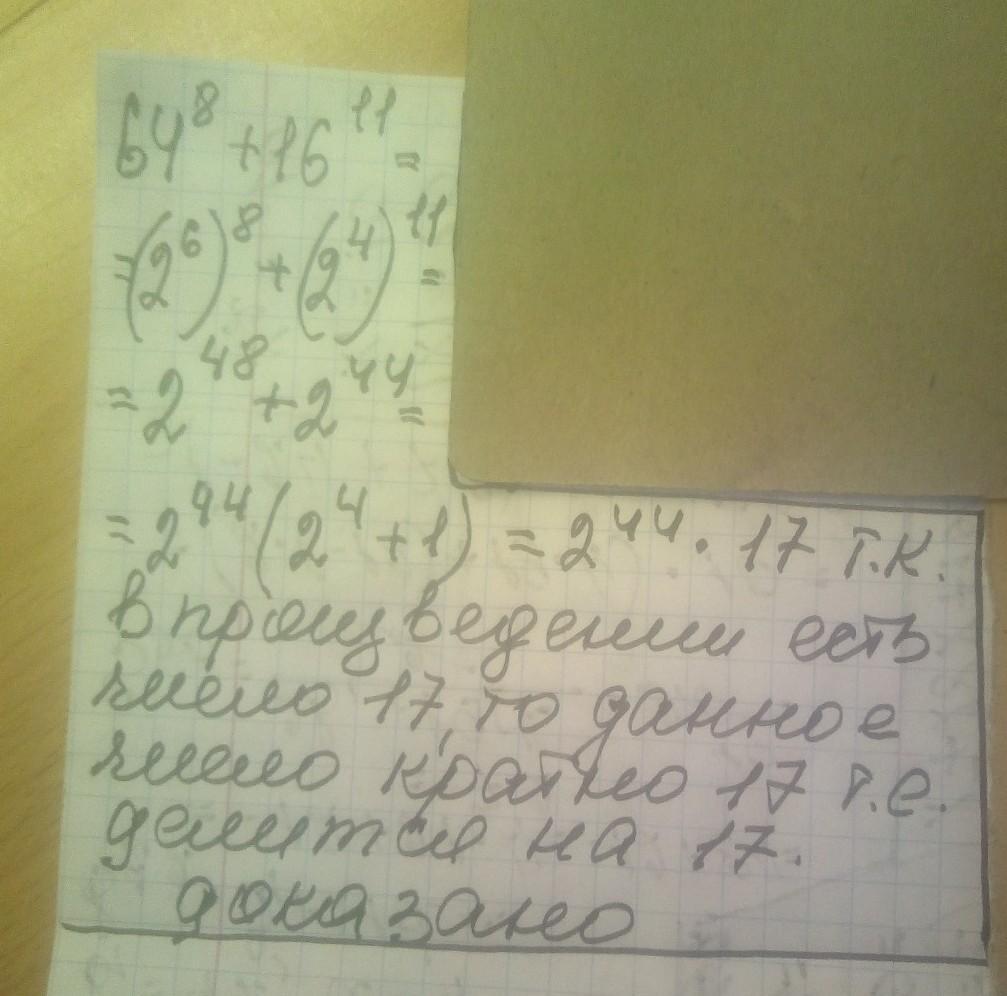 64⁸ + 16¹¹ =
= (2⁶)⁸ + (2⁴)¹¹ =
= 2⁴⁸ + 2⁴⁴ =
= 2⁴⁴ (2⁴ + 1) = 2⁴⁴ · 17 т.к.
в произведении есть
число 17, то данное
число кратно 17 т.е.
делится на 17.
доказано